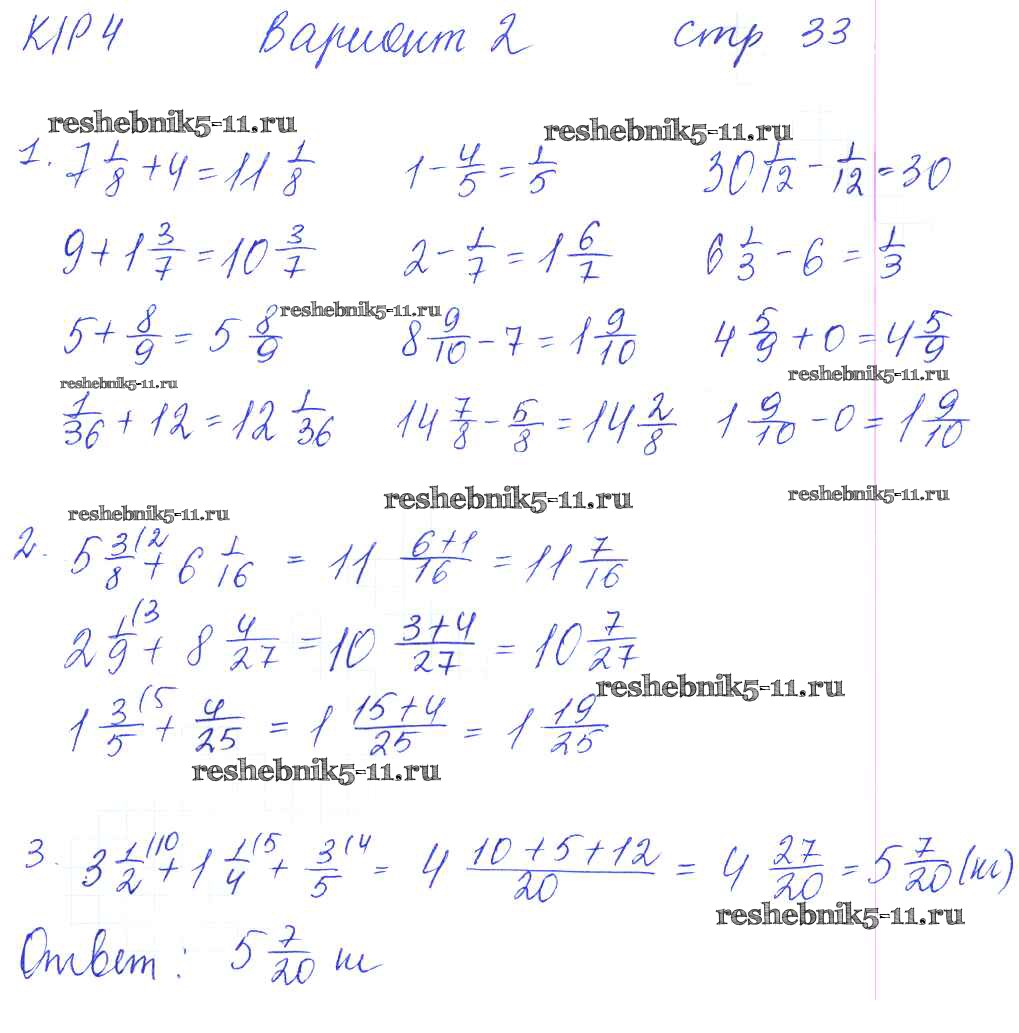 К/Р 4 Вариант 2 стр 33
reshebnik5-11.ru reshebnik5-11.ru
1. 7 1/8 + 4 = 11 1/8 1 - 4/5 = 1/5 30 1/12 - 1/12 = 30
9 + 1 3/7 = 10 3/7 2 - 1/7 = 1 6/7 6 1/3 - 6 = 1/3
reshebnik5-11.ru
5 + 8/9 = 5 8/9 8 9/10 - 7 = 1 9/10 4 5/9 + 0 = 4 5/9
reshebnik5-11.ru reshebnik5-11.ru
1/36 + 12 = 12 1/36 14 7/8 - 5/8 = 14 2/8 1 9/10 - 0 = 1 9/10
reshebnik5-11.ru reshebnik5-11.ru reshebnik5-11.ru
2. 5 3/8 (2 + 6 1/16 = 11 (6+1)/16 = 11 7/16
2 1/9 (3 + 8 4/27 = 10 (3+4)/27 = 10 7/27
reshebnik5-11.ru
1 3/5 (5 + 4/25 = 1 (15+4)/25 = 1 19/25
reshebnik5-11.ru
3. 3 1/2 (10 + 1 1/4 (5 + 3/5 (4 = 4 (10+5+12)/20 = 4 27/20 = 5 7/20 (кг)
reshebnik5-11.ru
Ответ: 5 7/20 кг